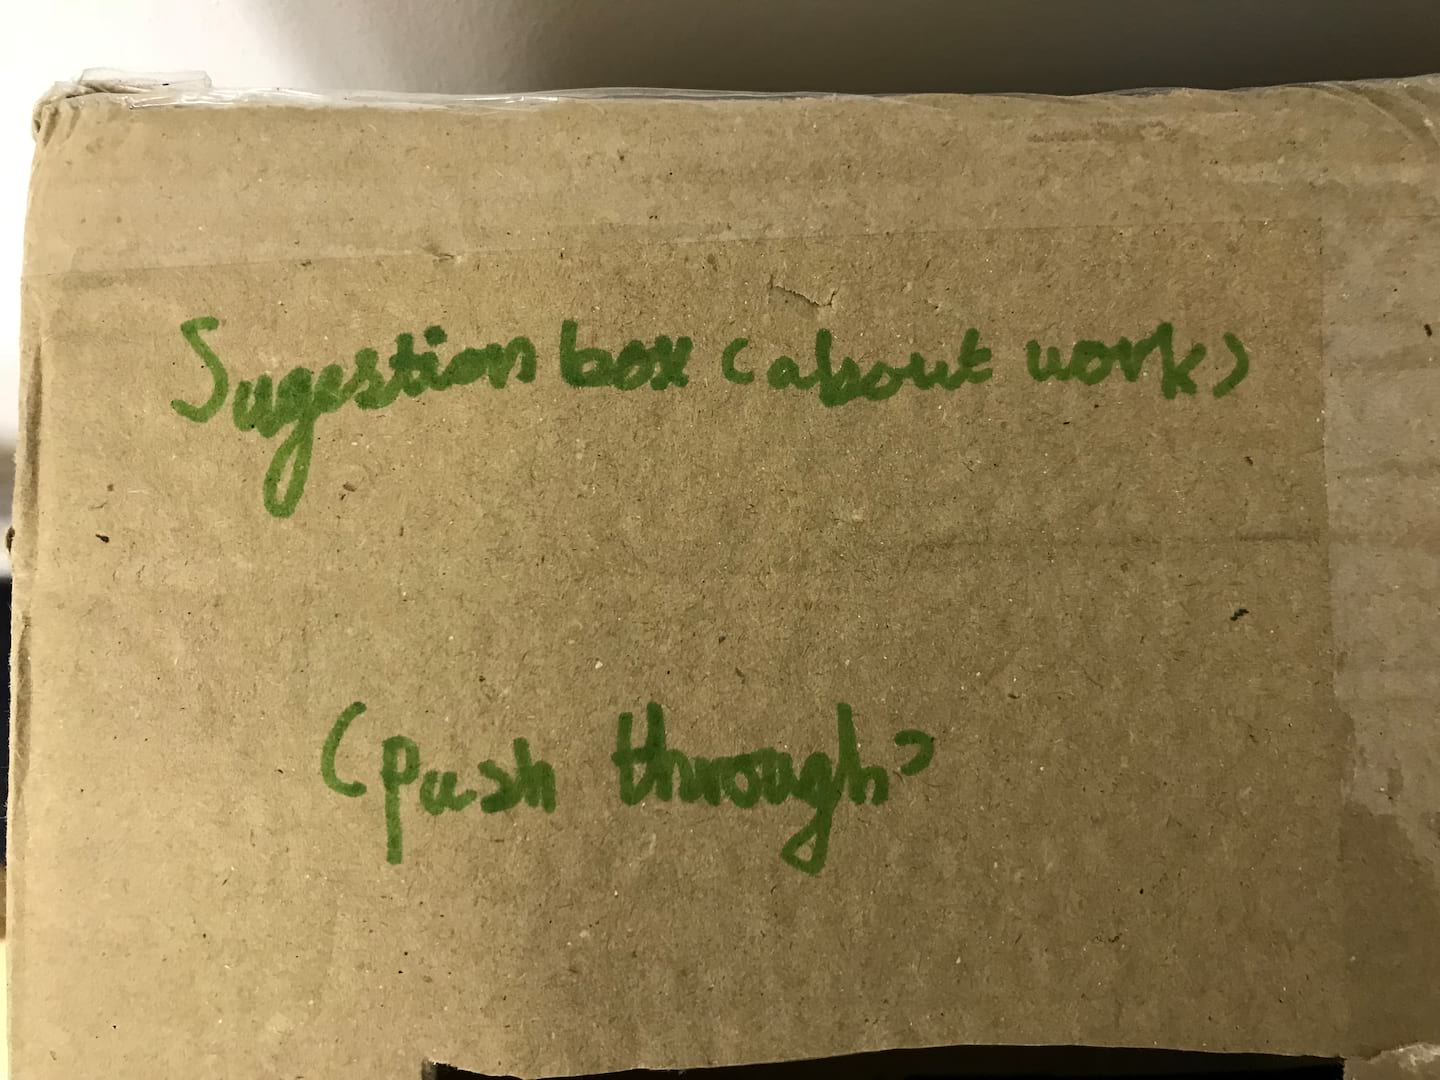 Sugestion box (about work)
(push through)